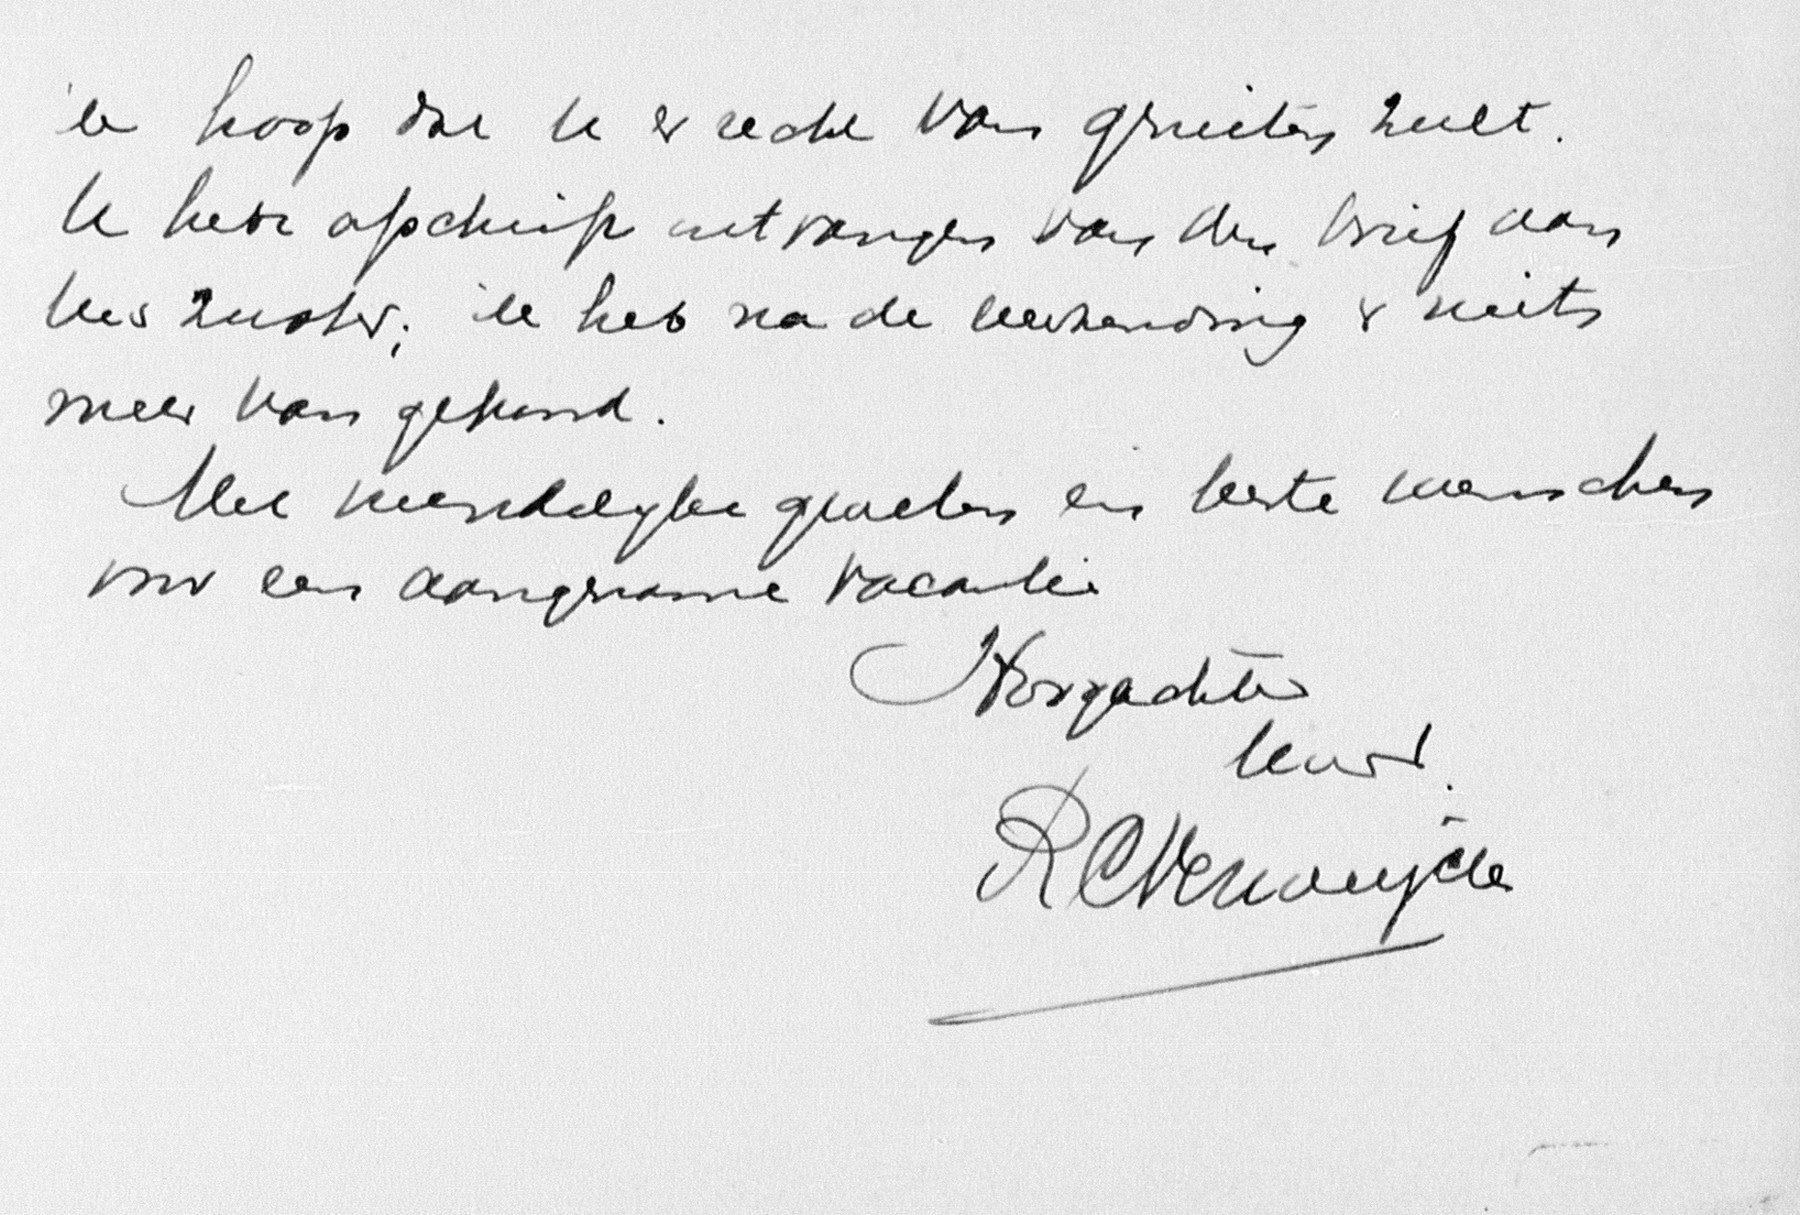 ik hoop dat U er recht van genieten zult.
U hebt afschrift ontvangen van den brief aan
Uw zuster; ik heb na de verzending er niets
meer van gehoord.
Met vriendelijke groeten en beste wenschen
voor een aangename vacantie
Hoogachtend
R C